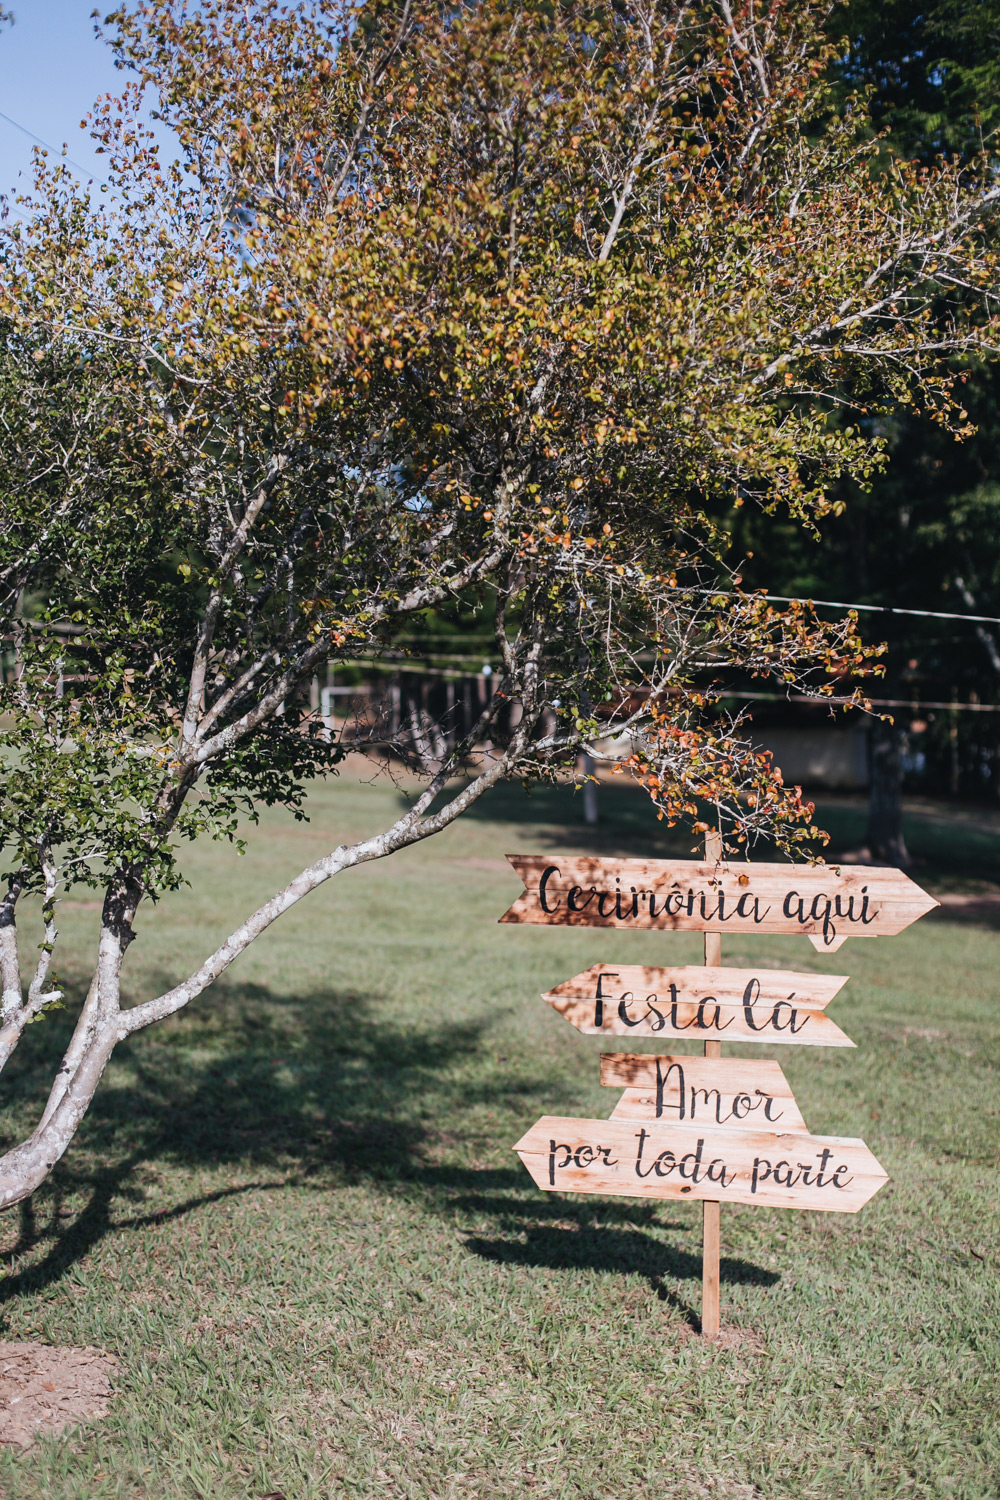 Cerimônia aqui
Festa lá
Amor
por toda parte